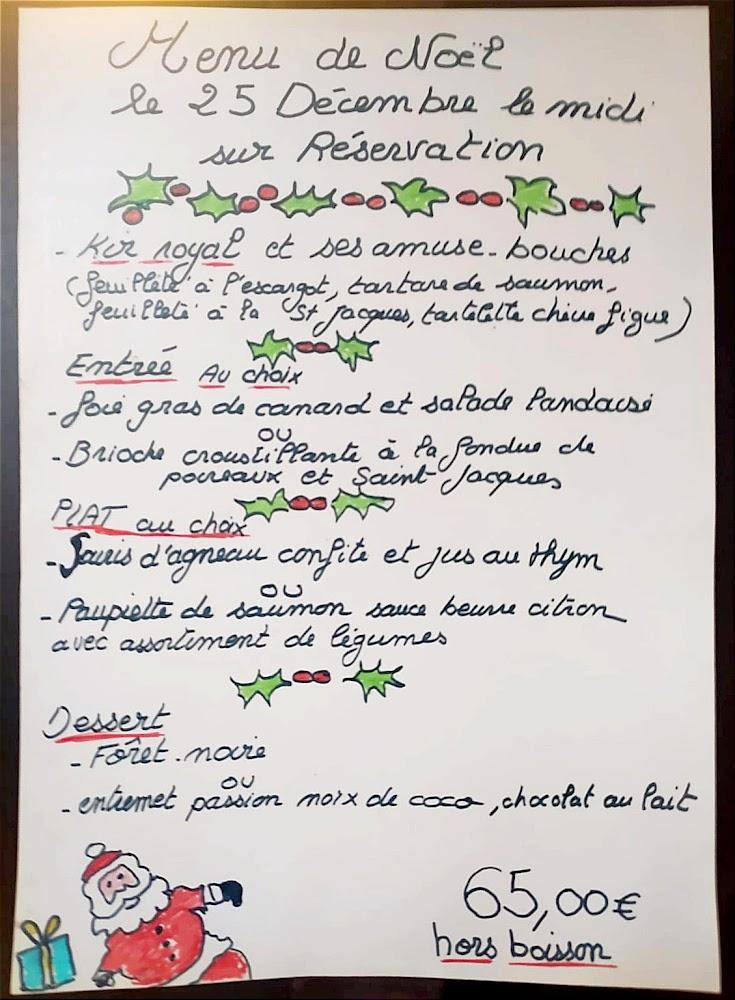 Menu de Noël
le 25 Décembre le midi
sur Réservation
- Kir royal et ses amuse-bouches
(feuilleté à l'escargot, tartare de saumon,
feuilleté à la St Jacques, tartelette chèvre figue)
Entrée Au choix
- foie gras de canard et salade landaise
ou
- Brioche croustillante à la fondue de
poireaux et Saint Jacques
PLAT au choix
- Souris d'agneau confite et jus au thym
ou
- Paupiette de saumon sauce beurre citron
avec assortiment de légumes
Dessert
- Fôret-noire
ou
- entremet passion noix de coco, chocolat au lait
65,00€
hors boisson